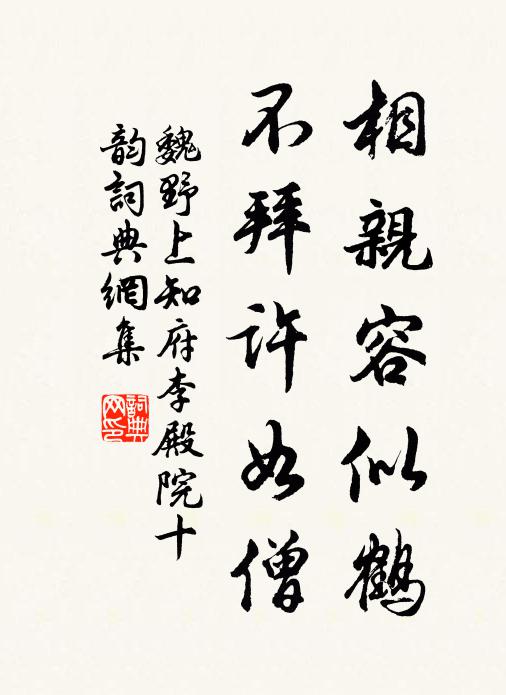 相親容似鶴
不拜許如僧
魏野上知府李殿院十
韵詞典網集
詞典網印